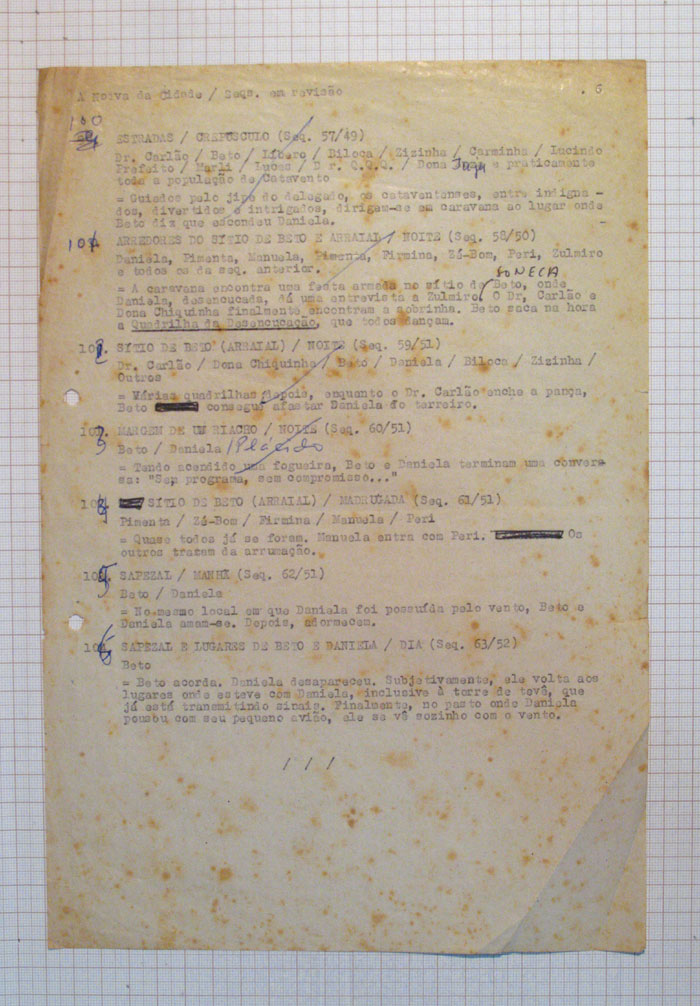 A Noiva da Cidade / Seqs. em revisão . 6
100
ESTRADAS / CREPÚSCULO (Seq. 57/49)
Dr. Carlão / Beto / Líbero / Biloca / Zizinha / Carminha / Lucindo
Prefeito / Marli / Lucas / D r. Q.Q.Q. / Dona e praticamente
toda a população de Catavento
= Guiados pelo jipe do delegado, os cataventenses, entre indigna-
dos, divertidos e intrigados, dirigem-se em caravana ao lugar onde
Beto diz que escondeu Daniela.
101 ARREDORES DO SÍTIO DE BETO E ARRAIAL / NOITE (Seq. 58/50)
Daniela, Pimenta, Manuela, Pimenta, Firmina, Zé-Bom, Peri, Zulmiro
e todos os da seq. anterior.
SONECA
= A caravana encontra uma festa armada no sítio de Beto, onde
Daniela, desencucada, dá uma entrevista a Zulmiro. O Dr, Carlão e
Dona Chiquinha finalmente encontram a sobrinha. Beto saca na hora
a Quadrilha da Desencucação, que todos dançam.
102. SÍTIO DE BETO (ARRAIAL) / NOITE (Seq. 59/51)
Dr. Carlão / Dona Chiquinha / Beto / Daniela / Biloca / Zizinha /
Outros
= Várias quadrilhas depois, enquanto o Dr. Carlão enche a pança,
Beto consegui afastar Daniela do terreiro.
103. MARGEM DE UM RIACHO / NOITE (Seq. 60/51)
Beto / Daniela /Plácido
= Tendo acendido uma fogueira, Beto e Daniela terminam uma conver-
sa: "Sem programa, sem compromisso..."
104 SÍTIO DE BETO (ARRAIAL) / MADRUGADA (Seq. 61/51)
Pimenta / Zé-Bom / Firmina / Manuela / Peri
= Quase todos já se foram. Manuela entra com Peri. Os
outros tratam da arrumação.
105 SAPEZAL / MANHÃ (Seq. 62/51)
Beto / Daniela
= No mesmo local em que Daniela foi possuída pelo vento, Beto e
Daniela amam-se. Depois, adormecem.
106 SAPEZAL E LUGARES DE BETO E DANIELA / DIA (Seq. 63/52)
Beto
= Beto acorda. Daniela desapareceu. Subjetivamente, ele volta aos
lugares onde esteve com Daniela, inclusive à torre de tevê, que
já está transmitindo sinais. Finalmente, no pasto onde Daniela
pousou com seu pequeno avião, ele se vê sozinho com o vento.
/ / /